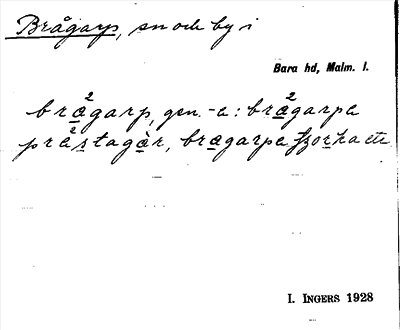 Brågarp, sn och by i
Bara hd, Malm. l.
bra²garp, gen. -a: bra²garpa
pra²stagàr, bragarpa
I. INGERS 1928